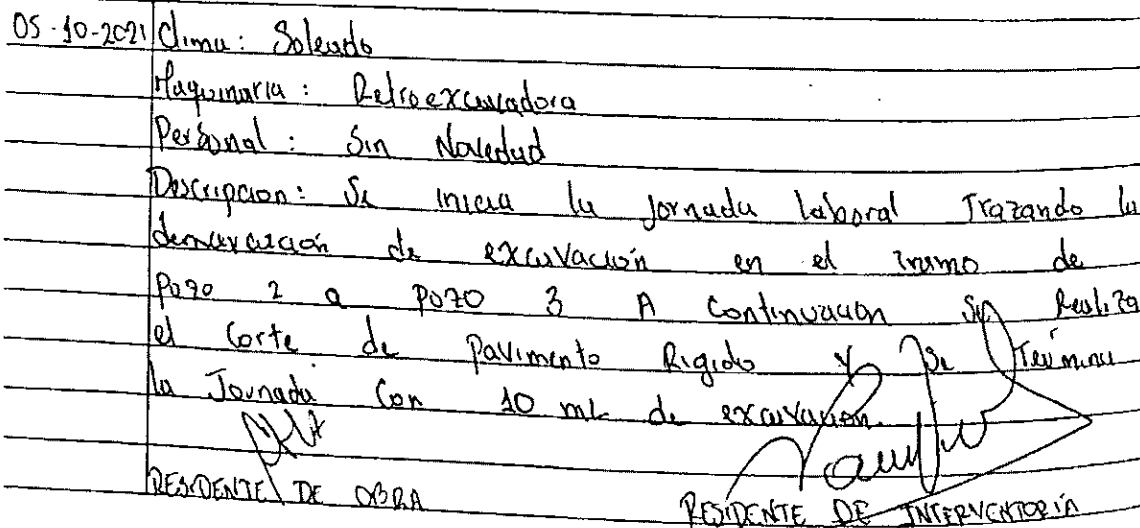 05-10-2021 Clima: Soleado
Maquinaria: Retroexcavadora
Personal: Sin Novedad
Descripcion: Se inicia la Jornada laboral Trazando la
demarcación de excavación en el tramo de
Pozo 2 a Pozo 3 A Continuacion Se Realiza
el Corte de Pavimento Rigido y Se Termina
la Jornada Con 10 ml de excavacion.
RESIDENTE DE OBRA RESIDENTE DE INTERVENTORIA